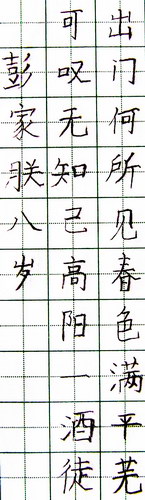 出门何所见春色满平芜
可叹无知己高阳一酒徒
彭家联八岁